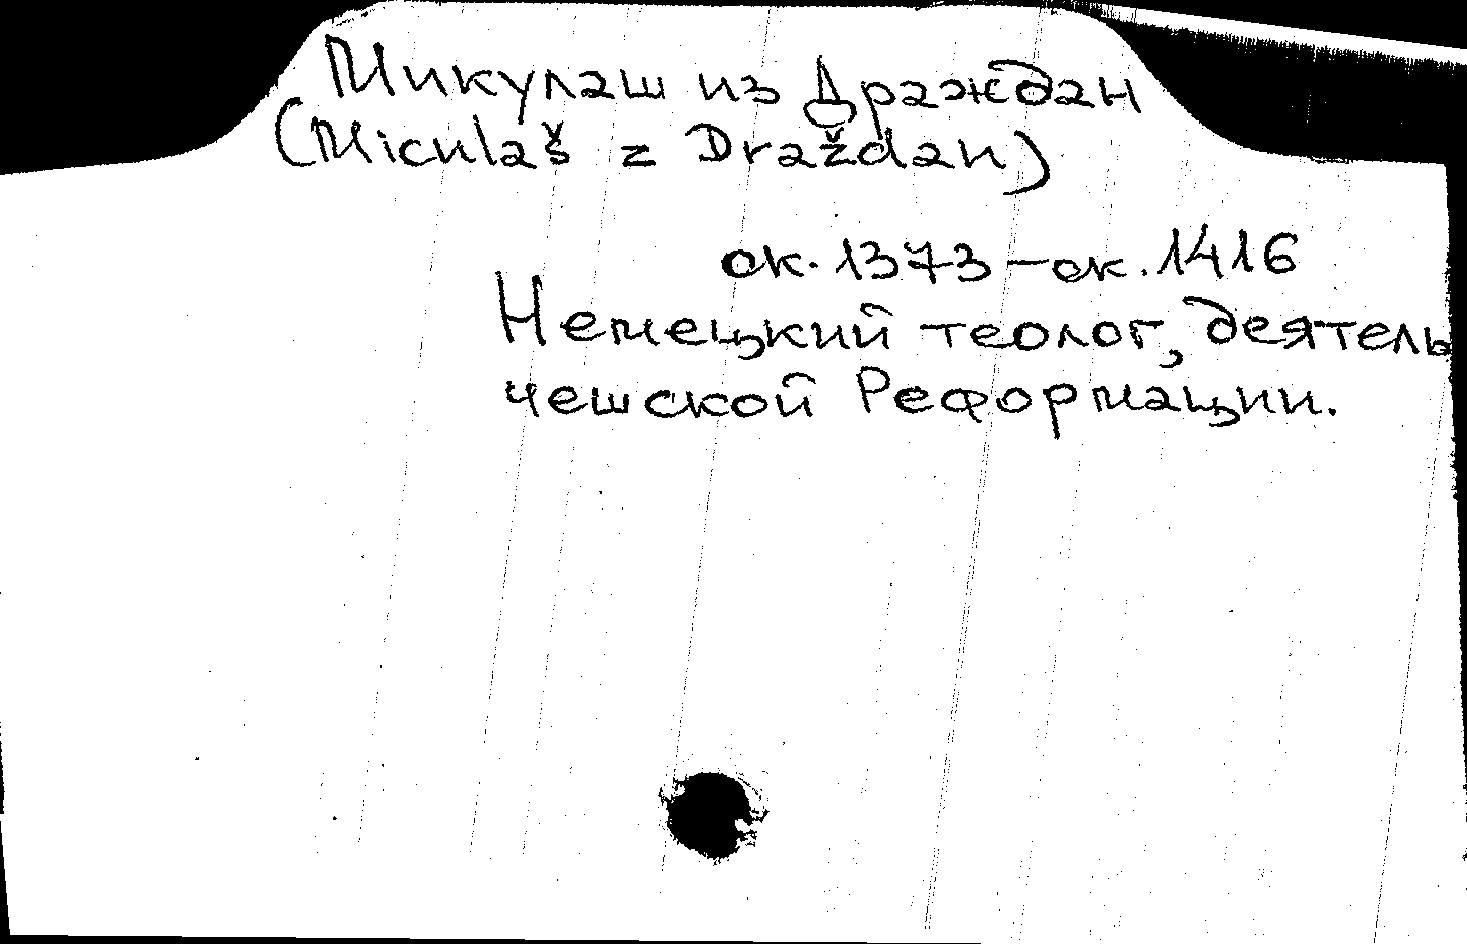 Микулаш из Драждан
(Miculaš z Draždan)
ок. 1373 – ок. 1416
Немецкий теолог, деятель
чешской Реформации.